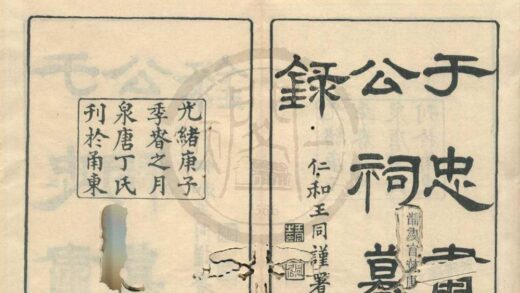 于忠肅
公祠墓
錄
仁和王同謹署
光緒庚子
季旾之月
泉唐丁氏
刊於甬東